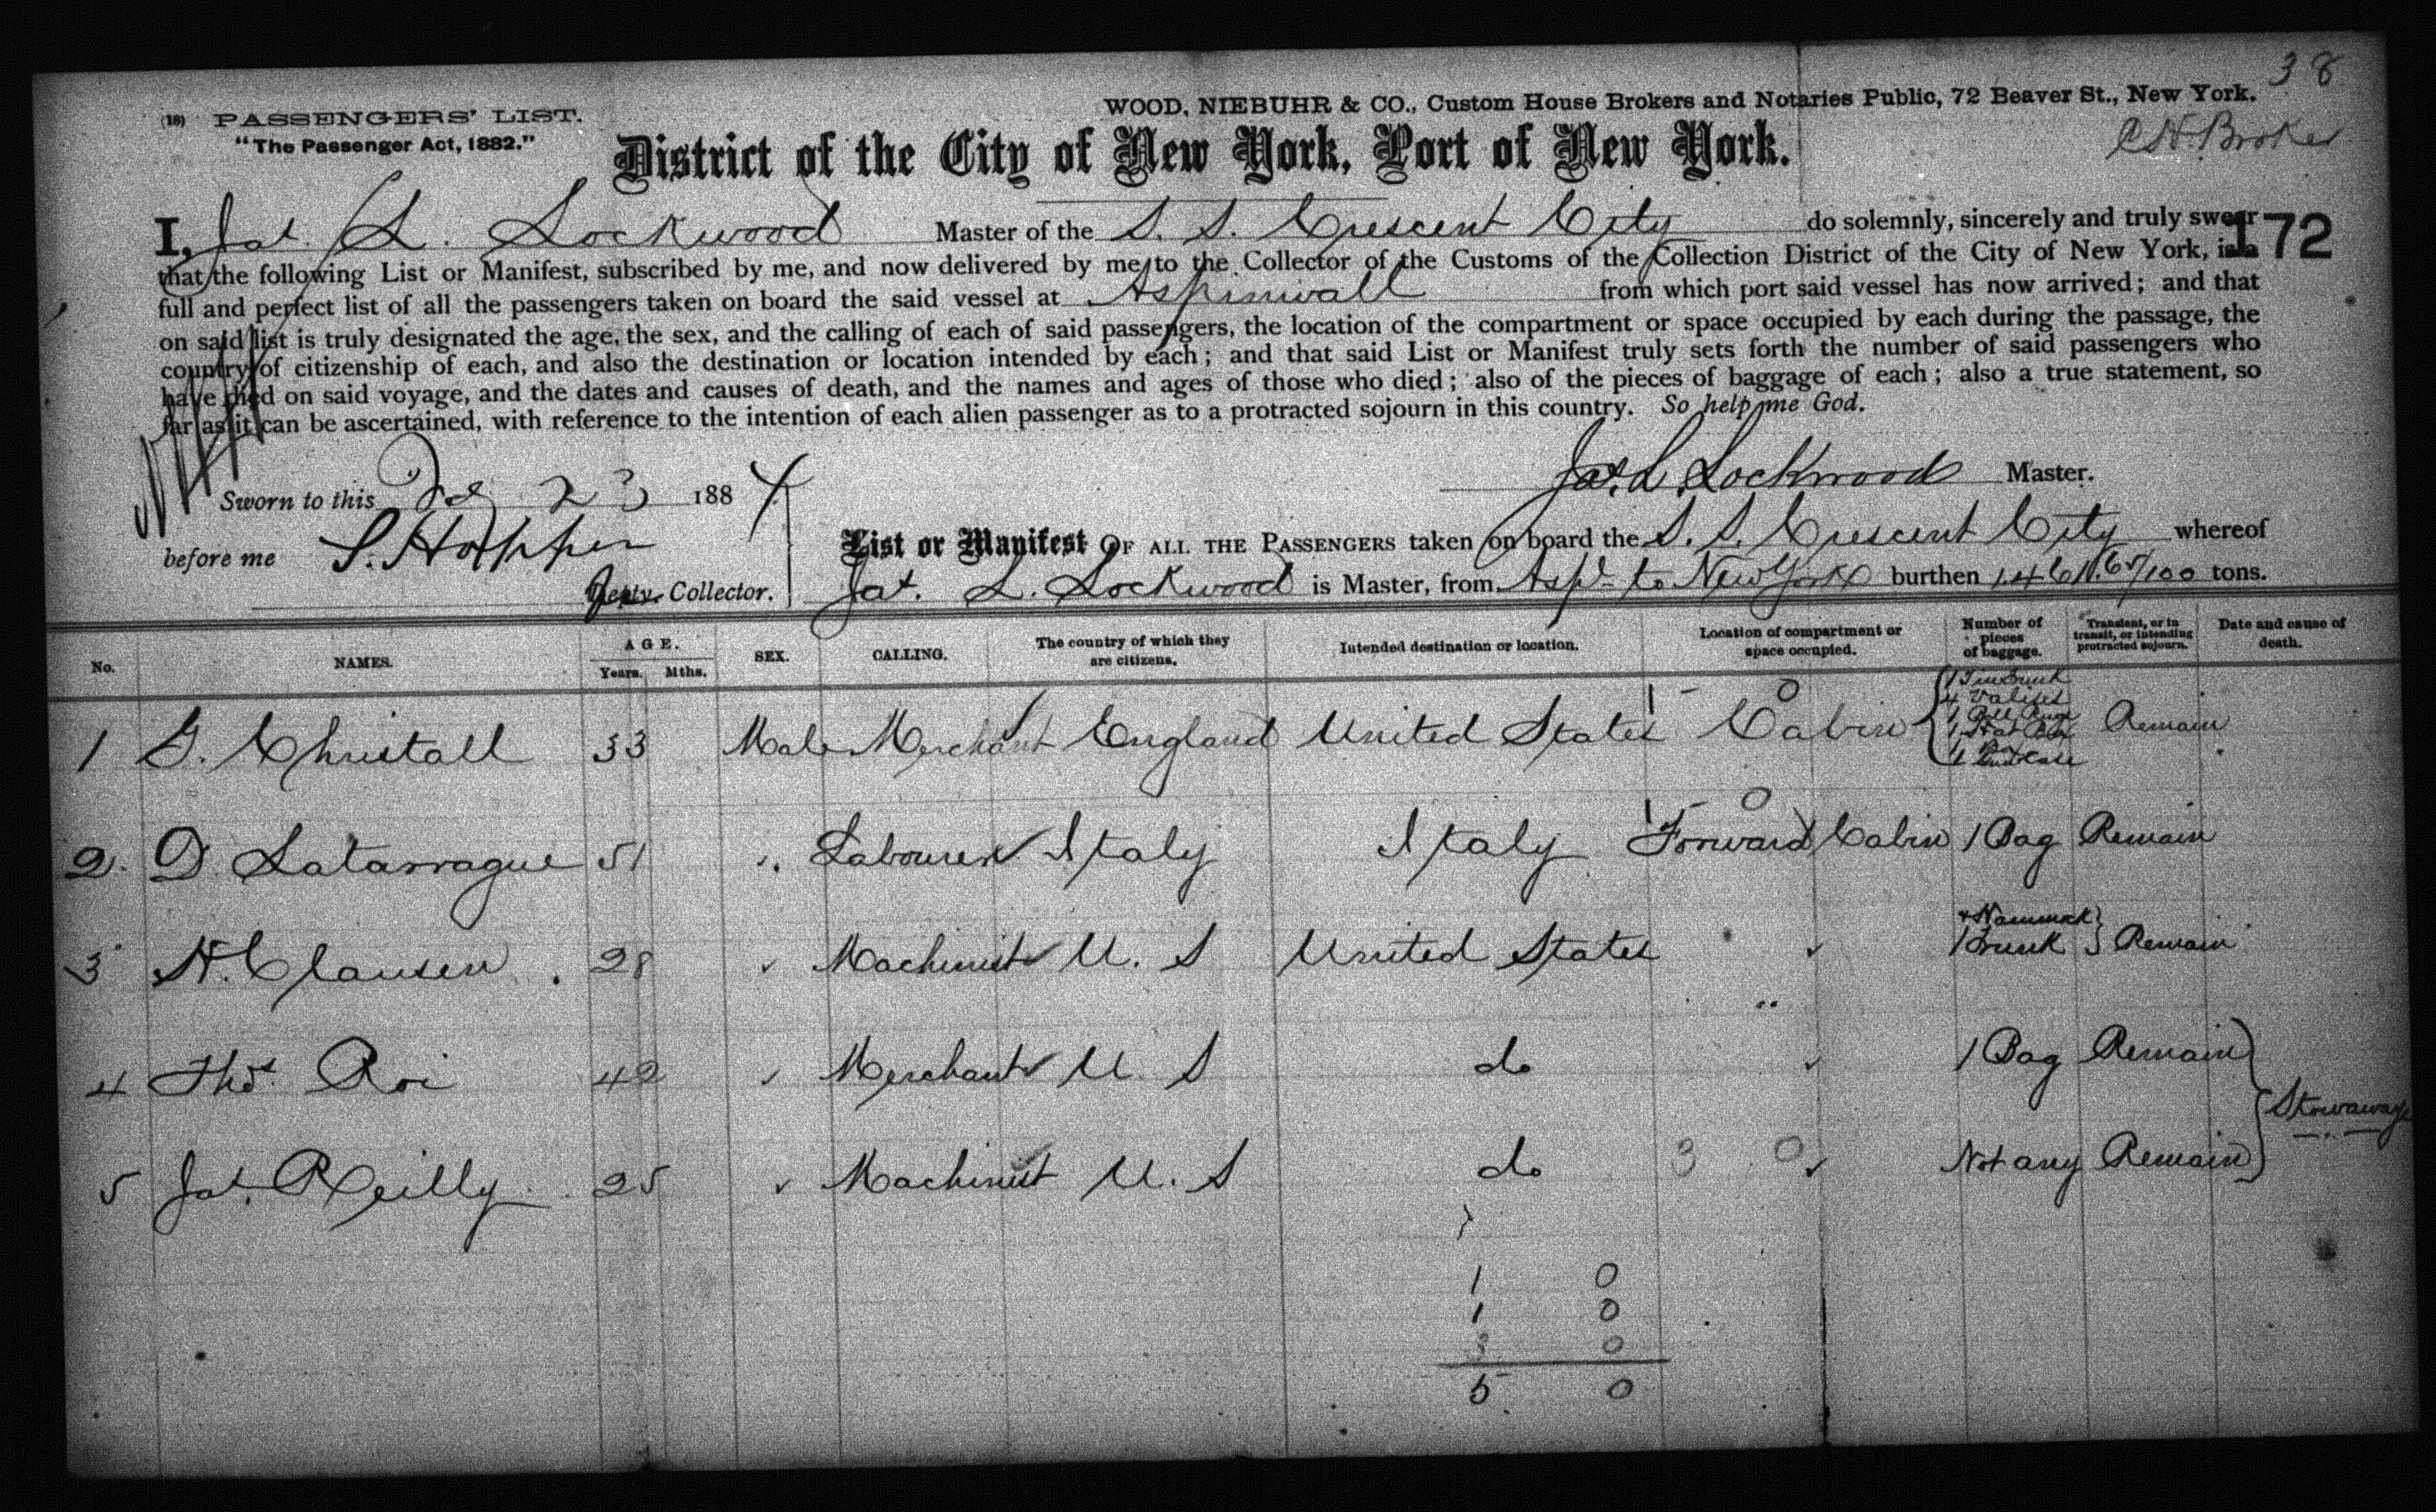 38
(18) PASSENGERS' LIST.
WOOD, NIEBUHR & CO., Custom House Brokers and Notaries Public, 72 Beaver St., New York.
"The Passenger Act, 1882."
C H. Broker
District of the City of New York, Port of New York.
I, Jas. L. Lockwood Master of the S. S. Crescent City do solemnly, sincerely and truly swear
172
that the following List or Manifest, subscribed by me, and now delivered by me to the Collector of the Customs of the Collection District of the City of New York, is a
full and perfect list of all the passengers taken on board the said vessel at Aspinwall from which port said vessel has now arrived; and that
on said list is truly designated the age, the sex, and the calling of each of said passengers, the location of the compartment or space occupied by each during the passage, the
country of citizenship of each, and also the destination or location intended by each; and that said List or Manifest truly sets forth the number of said passengers who
have died on said voyage, and the dates and causes of death, and the names and ages of those who died; also of the pieces of baggage of each; also a true statement, so
far as it can be ascertained, with reference to the intention of each alien passenger as to a protracted sojourn in this country. So help me God.
Jas. L. Lockwood Master.
Sworn to this 23 1884
before me S. Hopper
Depty. Collector.
List or Manifest OF ALL THE PASSENGERS taken on board the S. S. Crescent City whereof
Jas. L. Lockwood is Master, from Aspl to New York burthen /100 tons.
No. NAMES. AGE. Years. Mths. SEX. CALLING. The country of which they are citizens. Intended destination or location. Location of compartment or space occupied. Number of pieces of baggage. Transient, or in transit, or intending protracted sojourn. Date and cause of death.
1 G. Christall 33 Male Merchant England United States 1 - 0 Cabin 1 Tin Trunk 4 Valises 1 Hat Box Remain
2. D. Latarrague 51 " Labourer Italy Italy 1 - 0 Forward Cabin 1 Bag Remain
3 H. Clausen 28 " Machinist U. S United States " + Hammock 1 Trunk Remain
4 Thos. Roi 42 " Merchant U. S do " 1 Bag Remain
Stowaways
5 Jas. Reilly 25 " Machinist U. S do 3 0 " Not any Remain
1 0
1 0
3 0
5 0